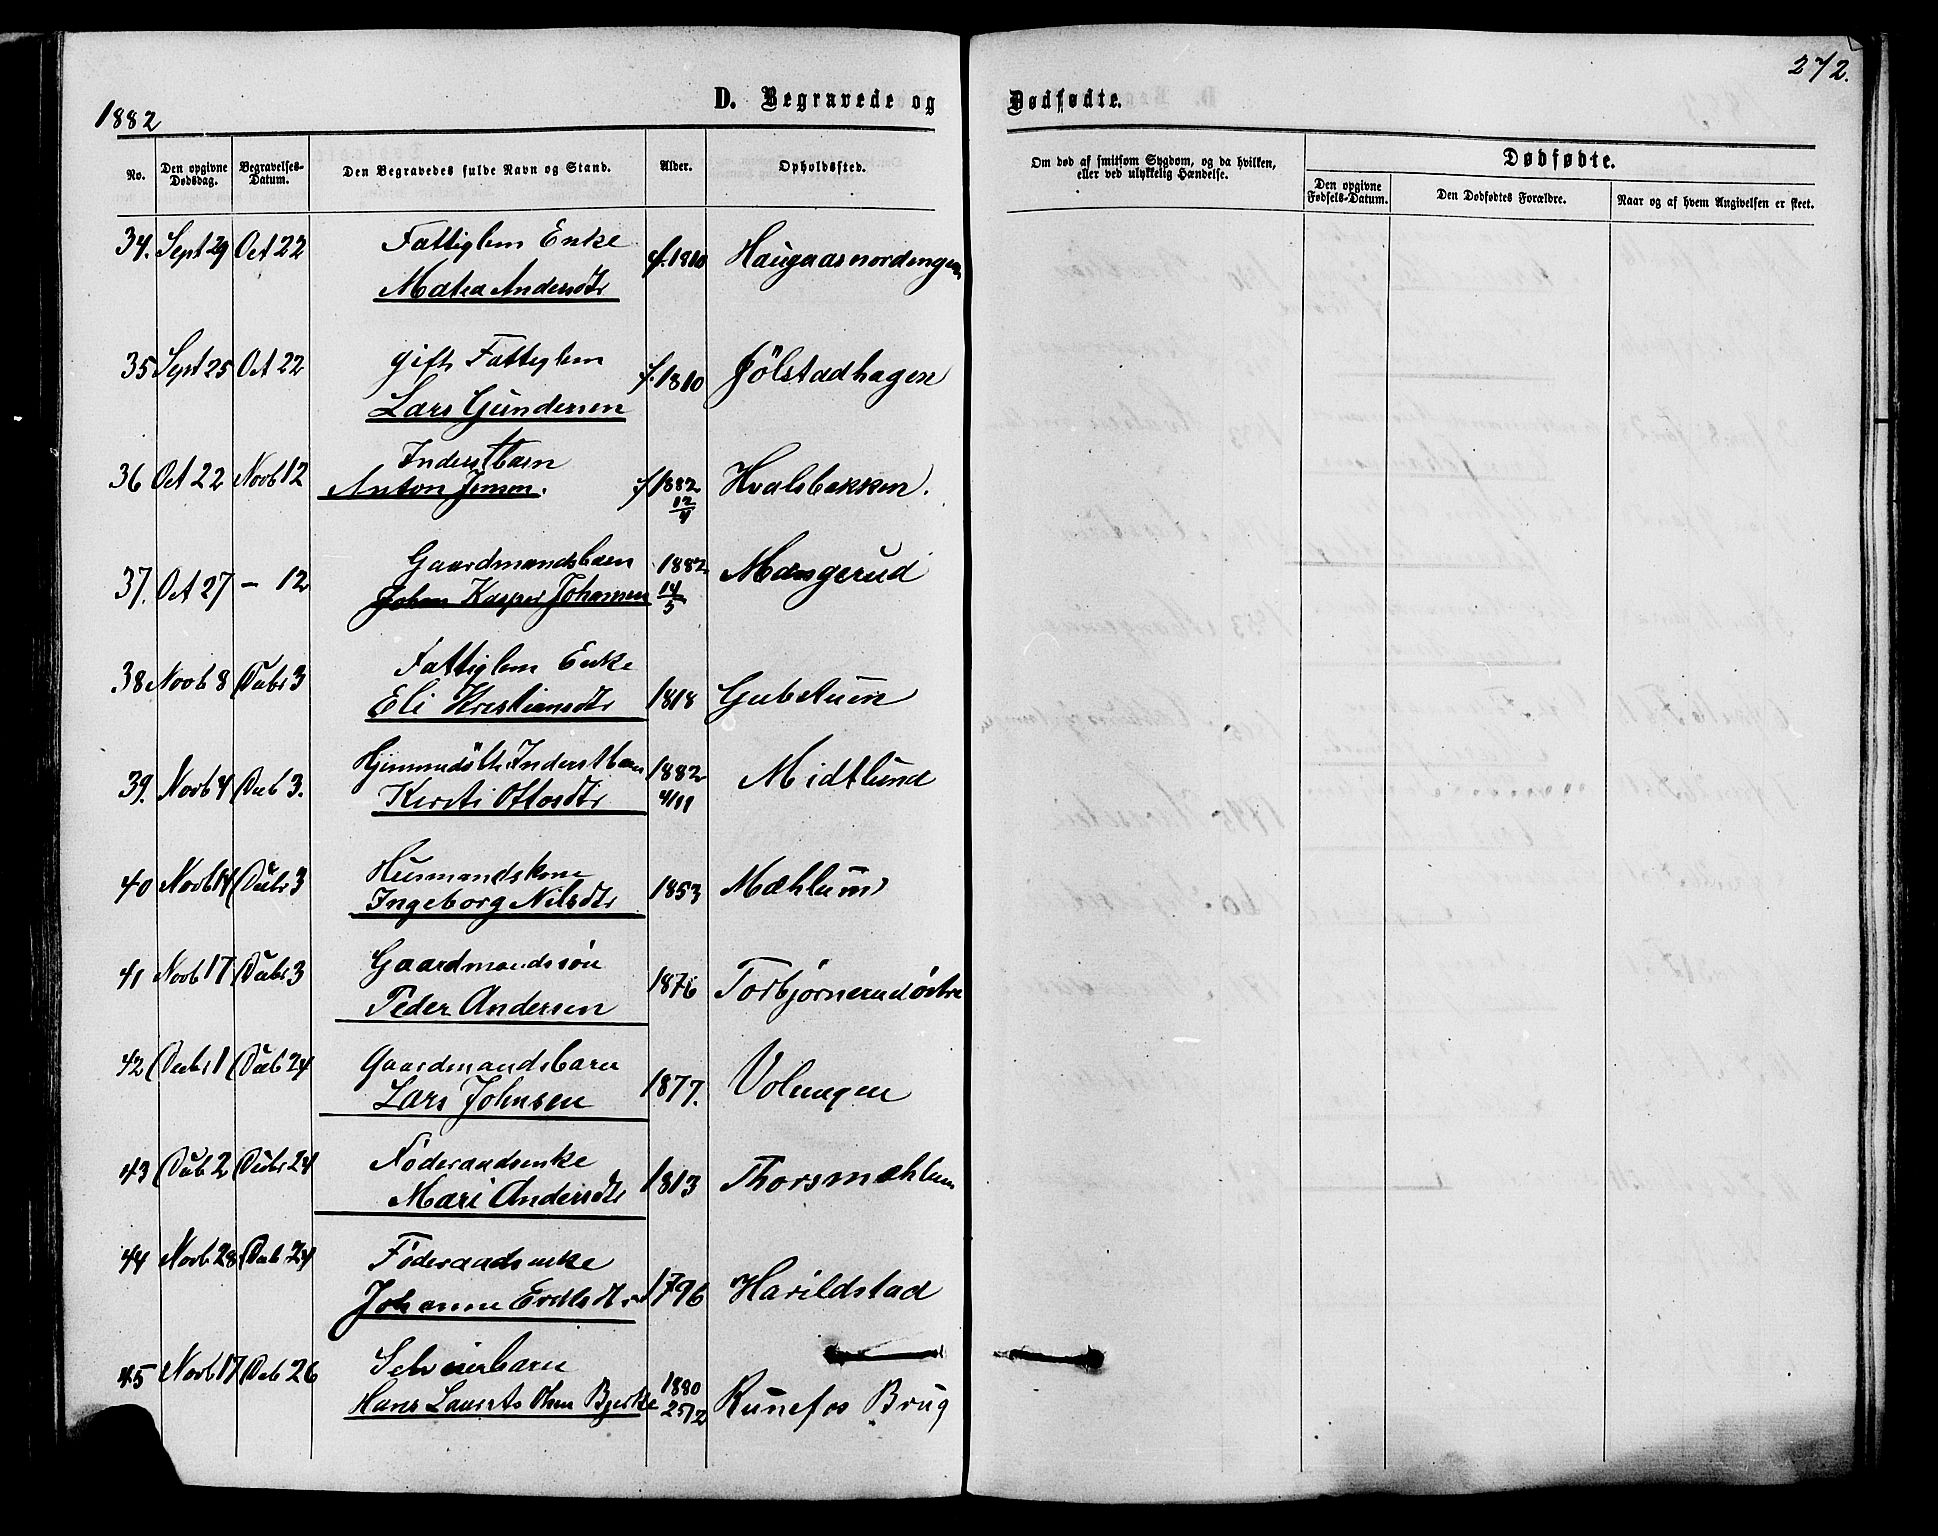 1882
D. Begravede og Dødfødte.
272.
No. Den opgivne Dødsdag. Begravelses-Datum. Den Begravedes fulde Navn og Stand. Alder. Opholdssted.
Om død af smitsom Sygdom, og da hvilken, eller ved ulykkelig Hændelse.
Dødfødte.
Den opgivne Fødsels-Datum. Den Dødfødtes Forældre. Naar og af hvem Angivelsen er skeet.
34. Sept 29 Oct 22 Fattiglem Enke f. 1810 Haugaasnordengen
Mathea Andersdtr
35 Sept 25 Oct 22 gift Fattiglem f. 1810 Jölstadhagen
Lars Gundersen
36 Oct 22 Novb 12 Inderstbarn
Anton Jensen. f 1882 12/4 Hvalsbakken.
37. Oct 27 - 12 Gaardmandsbarn 1882 14/5 Mangerud
Johan Kasper Johansen
38 Novb 8 Decbr 3 Fattiglem Enke
Eli Kristiansdtr 1818 Gubstuen
39. Novb 4 Decb 3. Hjemmedöbt Inderstbarn 1882 4/11 Midtlund
Kersti Ottosdtr
40 Novb 14 Decbr 3 Husmandskone
Ingeborg Nilsdtr 1853 Mæhlum
41 Novb 17 Decbr 3 Gaardmandssøn
Peder Andersen 1876 Torbjørnerud østre
42 Decbr 1 Decb 24 Gaardmandsbarn
Lars Johnsen 1877. Volungen
43 Decb 2 Decbr 24 Föderaadsenke
Mari Andersdtr 1813 Thorsmæhlum
44 Novb 28 Decb 24 Föderaadsenke
Johanne 1796 Harildstad
45 Novb 17 Deb 26 Selveierbarn
Hans Laurits Olsen Bjerke 1880 25/2 Runefos Brug